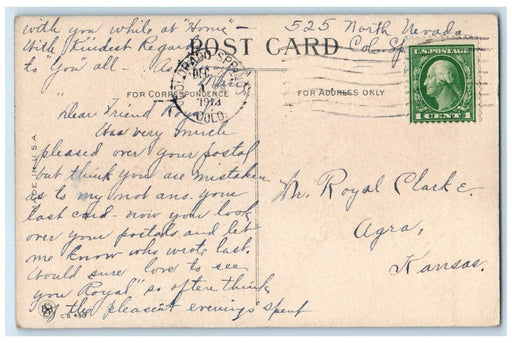 with you while at "Home" –
With kindest Regards
to "You" all.
525 North Nevada
Colo Sp
POST CARD
FOR CORRESPONDENCE
FOR ADDRESS ONLY
COLORADO SPRINGS
DEC
COLO.
U.S. POSTAGE
1 CENT 1
"Dear Friend Roy"
Was very much
pleased over your postal
but think you are mistaken
as to my not ans. your
last card - now you look
over your postals and let
me know who wrote last.
Would sure love to see
you "Royal" so often think
of the pleasent evenings spent
Mr. Royal Clark
Agra,
Kansas.
MADE IN U.S.A.